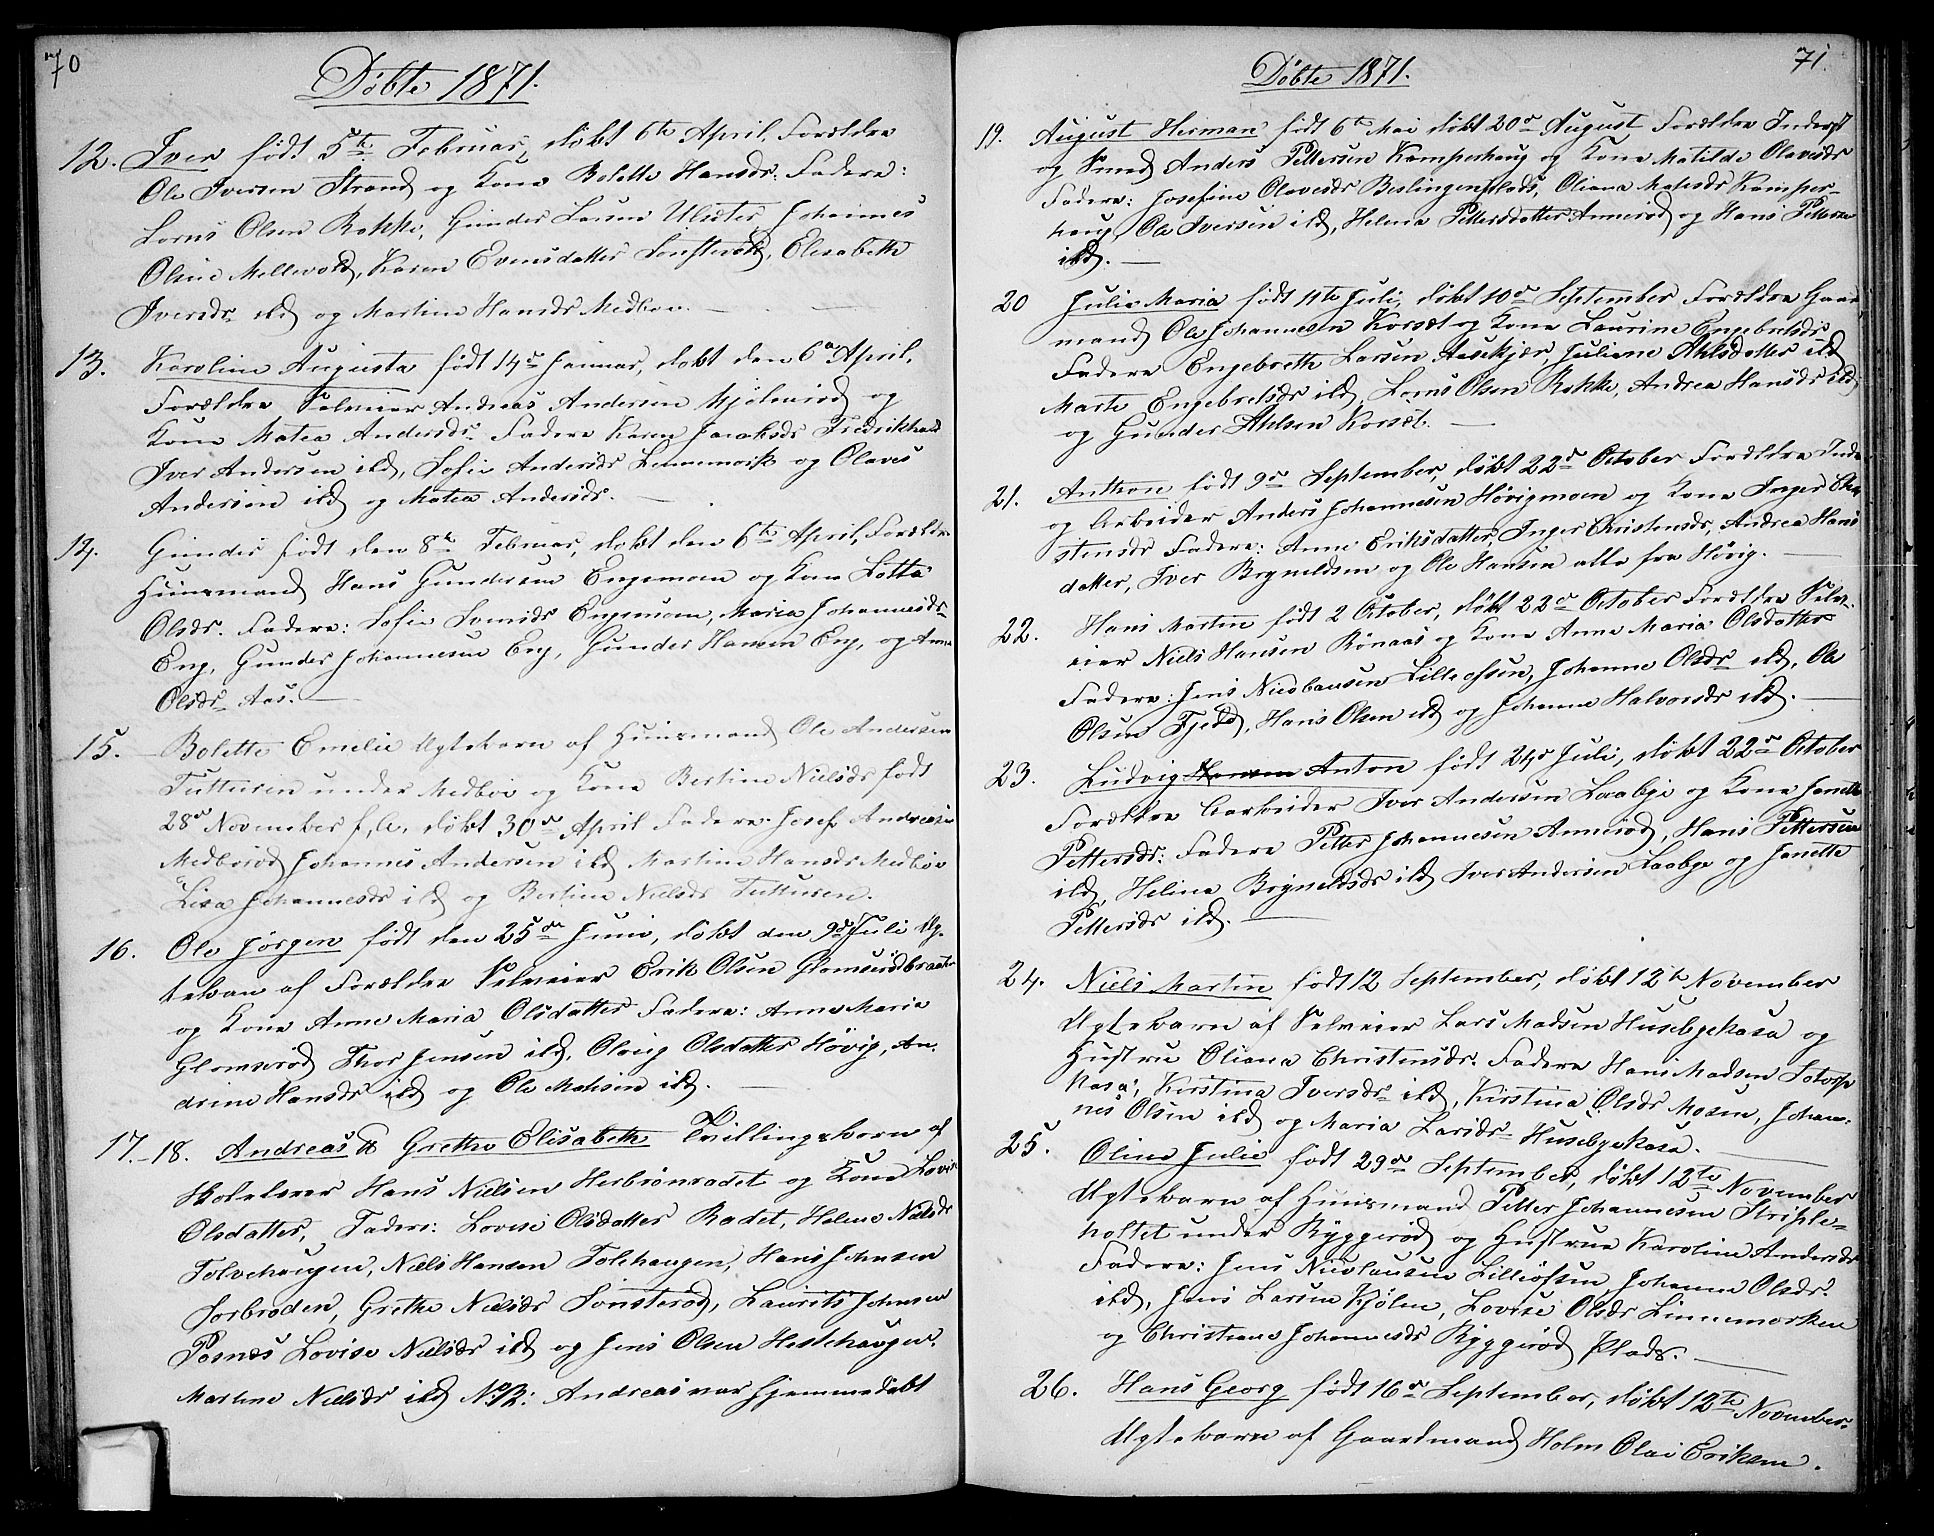 70
Döbte 1871.
12. Iver født 5te Februar, døbt 6te April. Forældre
Ole Iversen Strand og Kone Bolette Hansdr. Faddere:
Lorns Olsen Rokke, Gunder Larsen Ulsæter, Johannes
Olsen Mellevold, Karen Evensdatter Sonsterød, Elisabeth
Iversdr. ibd og Martine Hansdr Medboe. —
13. Karoline Augusta født 14de Januar, døbt den 6te April,
Forældre Selveier Andreas Andersen Mjølnerød og
Kone Matea Andersdr. Faddere Karen Jacobsdr Fredrikhald
Iver Andersen ibd, Sofie Andersdr Linnemork og Olaves
Andersen ibd og Matea Andersdr. —
14. Gunder født den 8de Februar, døbt den 6te April, Forældre
Huusmand Hans Gundersen Engsmoen og Kone Lotta
Olsdr. Faddere: Sofie Svensdr Engsmoen, Maria Johannesdr.
Eng, Gunder Johannesen Eng, Gunder Hansen Eng, og Anne
Olsdr. Aas. —
15. Bolette Emelie Ægtebarn af Huusmand Ole Andersen
Tutturen under Medboe og Kone Bertine Nielsdr født
28de November f. A., døbt 30te April Faddere: Josef Andresen
Medborød Johannes Andersen ibd Martine Hansdr Medboe
Lisa Johannesdr ibd og Bertine Nielsdr Tutturen.
16. Ole Jørgen født den 25de Juni, døbt den 9de Juli Æg-
tebarn af Forældre Selveier Erik Olsen Glomsrødbraaten
og Kone Anne Maria Olsdatter Faddere: Anne Maria
Glomserød Thor Jensen ibd, Olaug Olsdatter Høvig, An-
drine Hansdr ibd og Ole Matisen ibd. —
17.-18. Andreas & Grethe Elisabeth Tvillingebørn af
Hans Nielsen Herbrønrødet og Kone Lovise
Olsdatter, Faddere: Lovise Olsdatter Rødet, Helene Nielsdr
Tolvehaugen, Niels Hansen Tolvehaugen, Hans Johnsen
Sorbrøden, Grethe Nielsdr Sonsterød, Laurits Johnsen
Posnæs Lovise Nielsdr ibd og Jens Olsen Hestehaugen.
Martine Nielsdr ibd NB: Andreas var hjemmedøbt
71.
Döbte 1871.
19. August Herman født 6te Mai døbt 20de August Forældre Inderst
og Smed Anders Pettersen Kamperhaug og Kone Matilde Olavesdr
Faddere: Josefine Olavesdr Berlingenplads, Oliana Matisdr Kamper-
haug, Ole Iversen ibd, Helena Pettersdatter Annerød og Hans Pettersen
ibd. —
20 Julie Maria født 11te Juli, døbt 10de September Forældre Gaar-
mand Ole Johannesen Korsæt og Kone Laurine Engebretsdr.
Faddere Engebrette Larsen Aasekjær, Juliane Ahlsdatter ibd
Marte Engebretsdr ibd, Lorns Olsen Rokke, Andrea Hansdr ibd
og Gunder Ahlsen Korsæt. —
21. Anthon født 9de September, døbt 22de October Forældre Inderst
og Arbeider Anders Johannesen Høvigmoen og Kone Inger Chri-
stensdr Faddere: Anne Eriksdatter, Inger Christensdr, Andrea Hans
datter, Iver Brynildsen og Ole Hansen alle fra Høvig. —
22. Hans Martin født 2 October, døbt 22de October Forældre Selv-
eier Niels Hansen Rønaas og Kone Anne Maria Olsdatter
Faddere: Jens Nicolausen Lilleøfsen, Johanne Olsdr ibd, Ole
Olsen Fjeld, Hans Olsen ibd og Johanne Halvorsdr ibd. —
23. Ludvig Anton født 24de Juli, døbt 22de October
Forældre Aarbeider Iver Andersen Laabye og Kone Janette
Pettersdr: Faddere Petter Johannesen Annerød, Hans Pettersen
ibd, Helina Brynildsdr ibd Iver Andersen Laabye og Janette
Pettersdr ibd. —
24. Niels Martin født 12 September, døbt 12te November
Ægtebarn af Selveier Lars Madsen Husebyekasa og
Hustru Oliana Christensdr. Faddere Hans Madsen Sotorp
Kasa, Kirstina Iversdr ibd, Kirstina Olsdr Mosen, Johan-
nes Olsen ibd og Maria Larsdr Husebyekasa. —
25. Oline Julie født 29de September, døbt 12te November
Ægtebarn af Huusmand Petter Johannesen Striple-
holtet under Ryggerød og Hustrue Karoline Andersdr
Faddere: Jens Nicolausen Lilleøfsen, Johanne Olsdr.
ibd, Jens Larsen Kjølen, Lovise Olsdr Linnemorken
og Christiane Johannesdr Ryggerød Plads. —
26. Hans Georg født 16de September, døbt 12te November.
Ægtebarn af Gaardmand Holm Olai Eriksen.